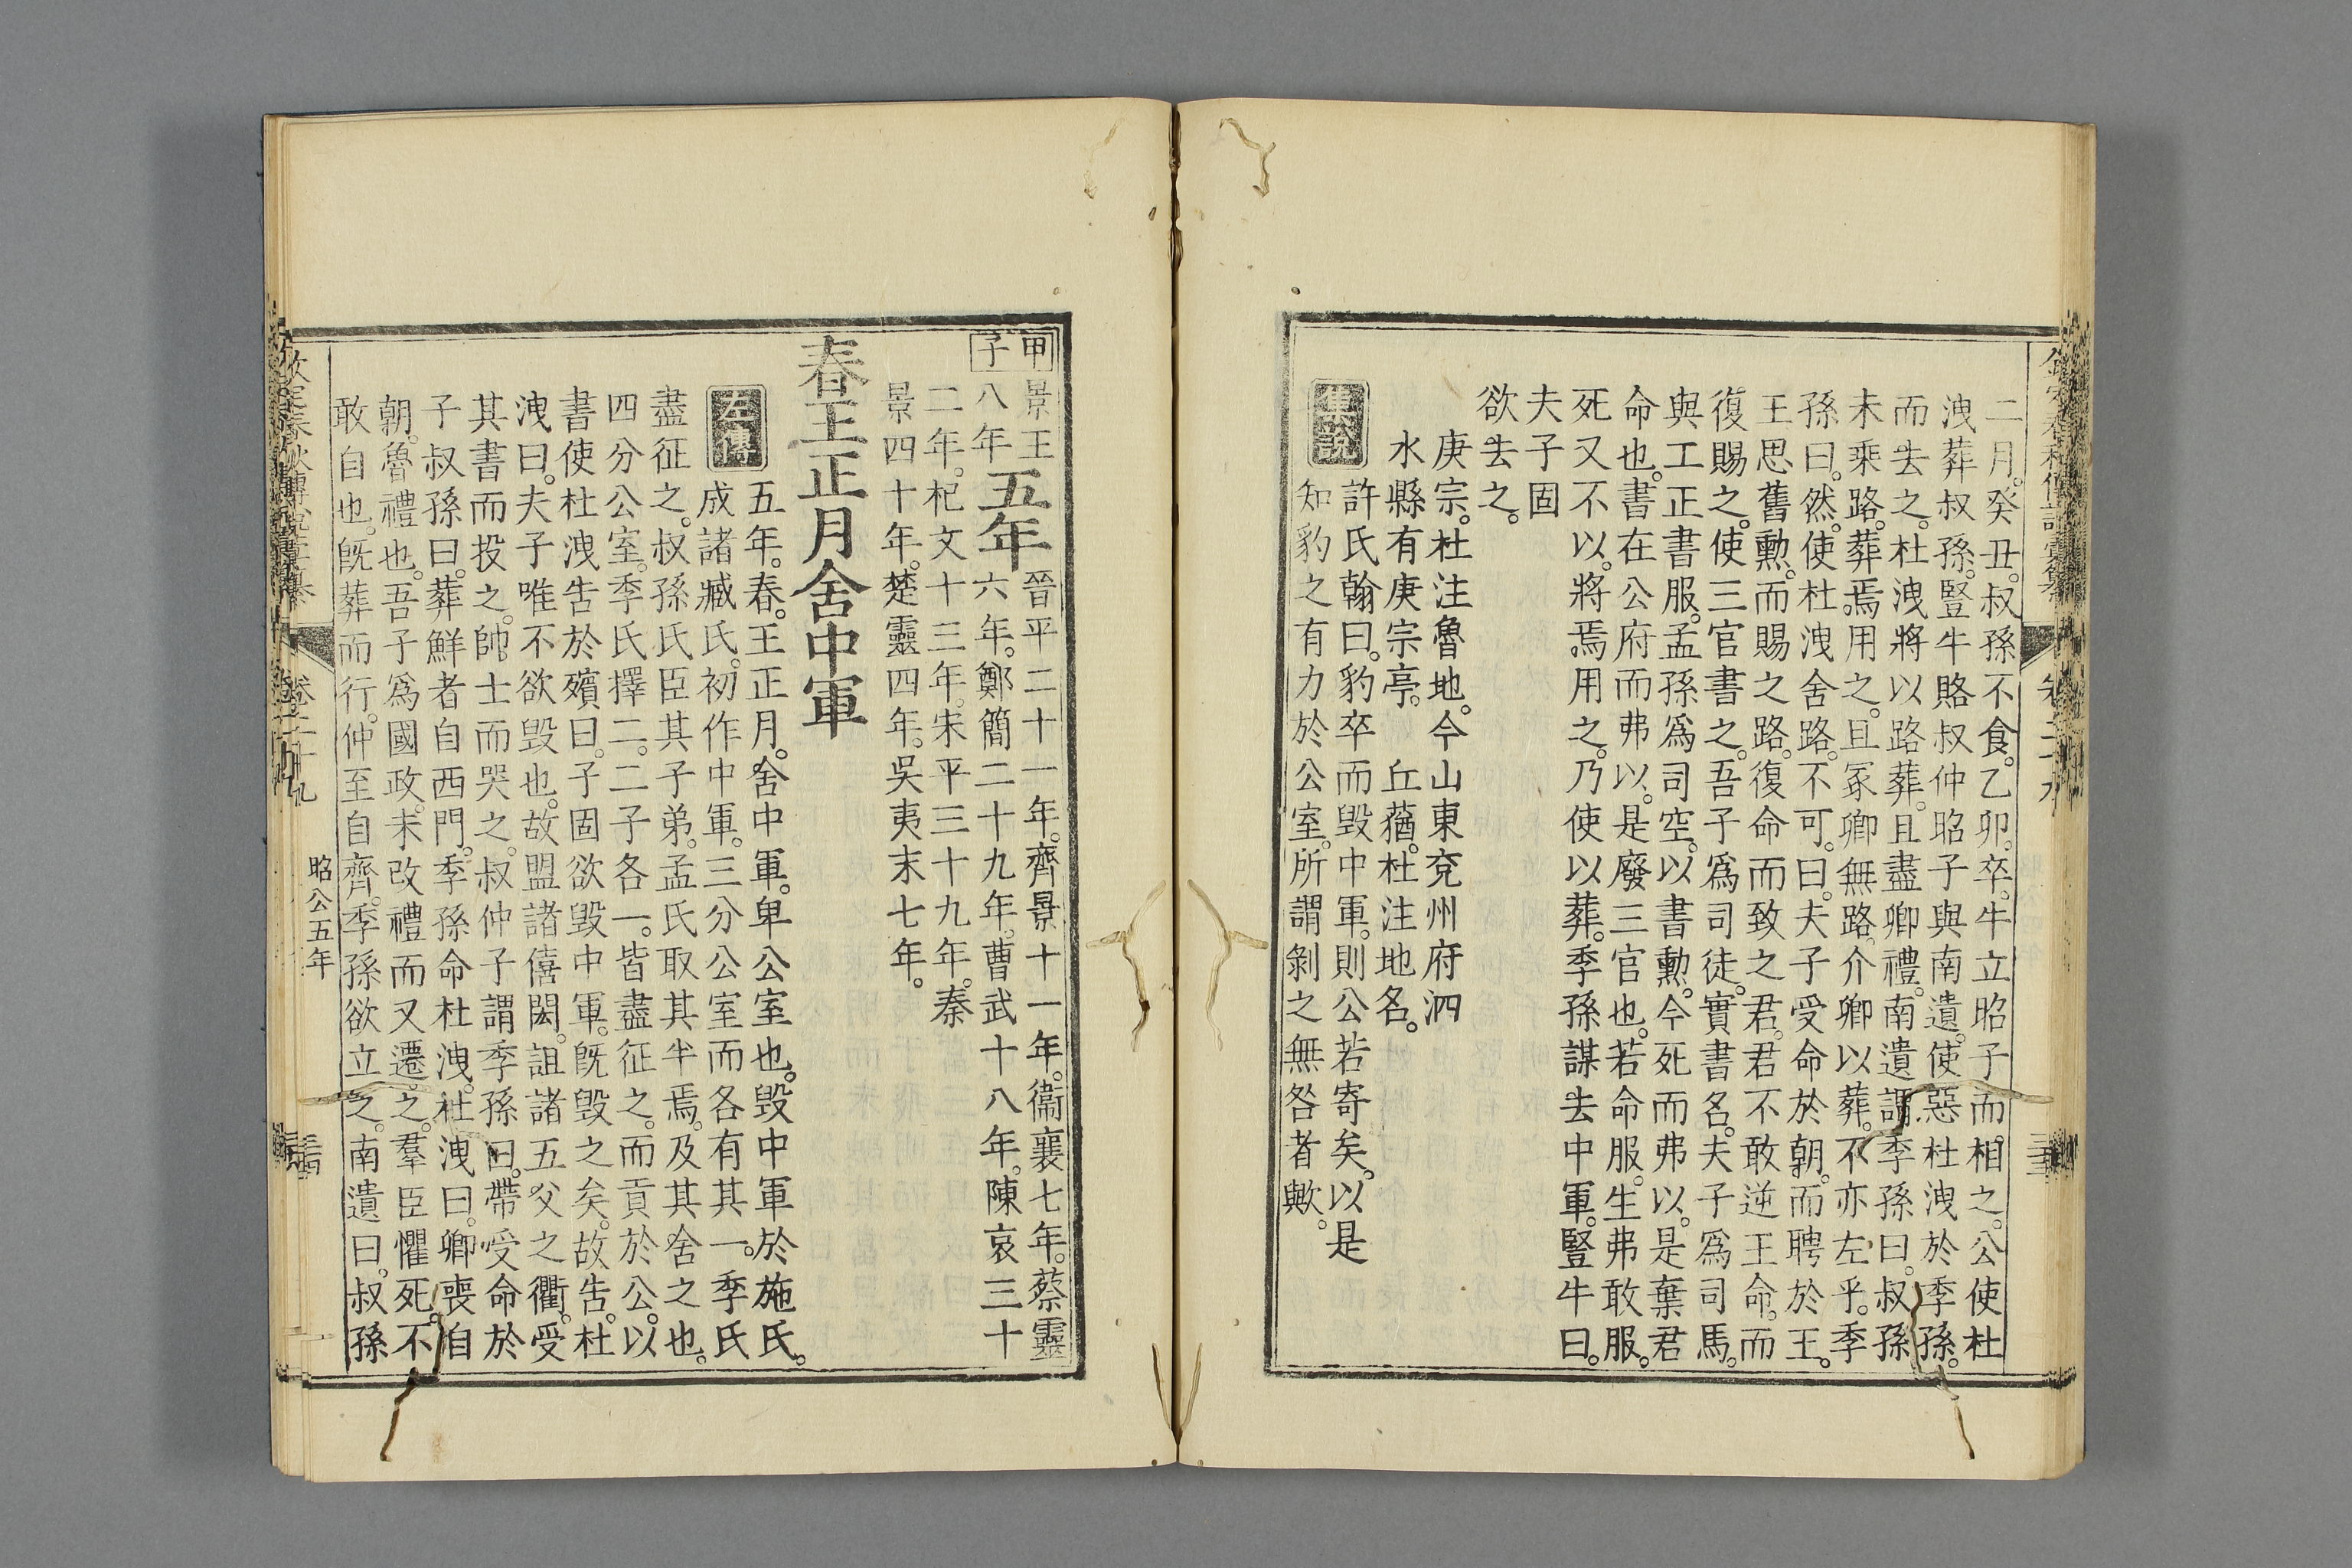 二月。癸丑。叔孫不食。乙卯。卒。牛立昭子而相之。公使杜
洩葬叔孫。豎牛賂叔仲昭子與南遺。使惡杜洩於季孫。
而去之。杜洩將以路葬。且盡卿禮。南遺謂季孫曰。叔孫
未乘路。葬焉用之。且冢卿無路。介卿以葬。不亦左乎。季
孫曰。然。使杜洩舍路。不可。曰。夫子受命於朝。而聘於王。
王思舊勳。而賜之路。復命而致之君。君不敢逆王命。而
復賜之。使三官書之。吾子爲司徒。實書名。夫子爲司馬。
與工正書服。孟孫爲司空。以書勳。今死而弗以。是棄君
命也。書在公府而弗以。是廢三官也。若命服。生弗敢服。
死又不以。將焉用之。乃使以葬。季孫謀去中軍。豎牛曰。
夫子固
欲去之。
庚宗。杜注魯地。今山東兗州府泗
水縣有庚宗亭。 丘蕕。杜注地名。
集說
許氏翰曰。豹卒而毀中軍。則公若寄矣。以是
知豹之有力於公室。所謂剝之無咎者歟。
甲子
景王
八年
五年
晉平二十一年。齊景十一年。衞襄七年。蔡靈
六年。鄭簡二十九年。曹武十八年。陳哀三十
二年。杞文十三年。宋平三十九年。秦
景四十年。楚靈四年。吳夷末七年。
春王正月舍中軍
左傳
五年。春。王正月。舍中軍。卑公室也。毀中軍於施氏。
成諸臧氏。初作中軍。三分公室而各有其一。季氏
盡征之。叔孫氏臣其子弟。孟氏取其半焉。及其舍之也。
四分公室。季氏擇二。二子各一。皆盡征之。而貢於公。以
書使杜洩告於殯曰。子固欲毀中軍。旣毀之矣。故告。杜
洩曰。夫子唯不欲毀也。故盟諸僖閎。詛諸五父之衢。受
其書而投之。帥士而哭之。叔仲子謂季孫曰。帶受命於
子叔孫曰。葬鮮者自西門。季孫命杜洩。杜洩曰。卿喪自
朝。魯禮也。吾子爲國政。未改禮而又遷。之。羣臣懼死。不
敢自也。旣葬而行。仲至自齊。季孫欲立之。南遺曰。叔孫
昭公五年